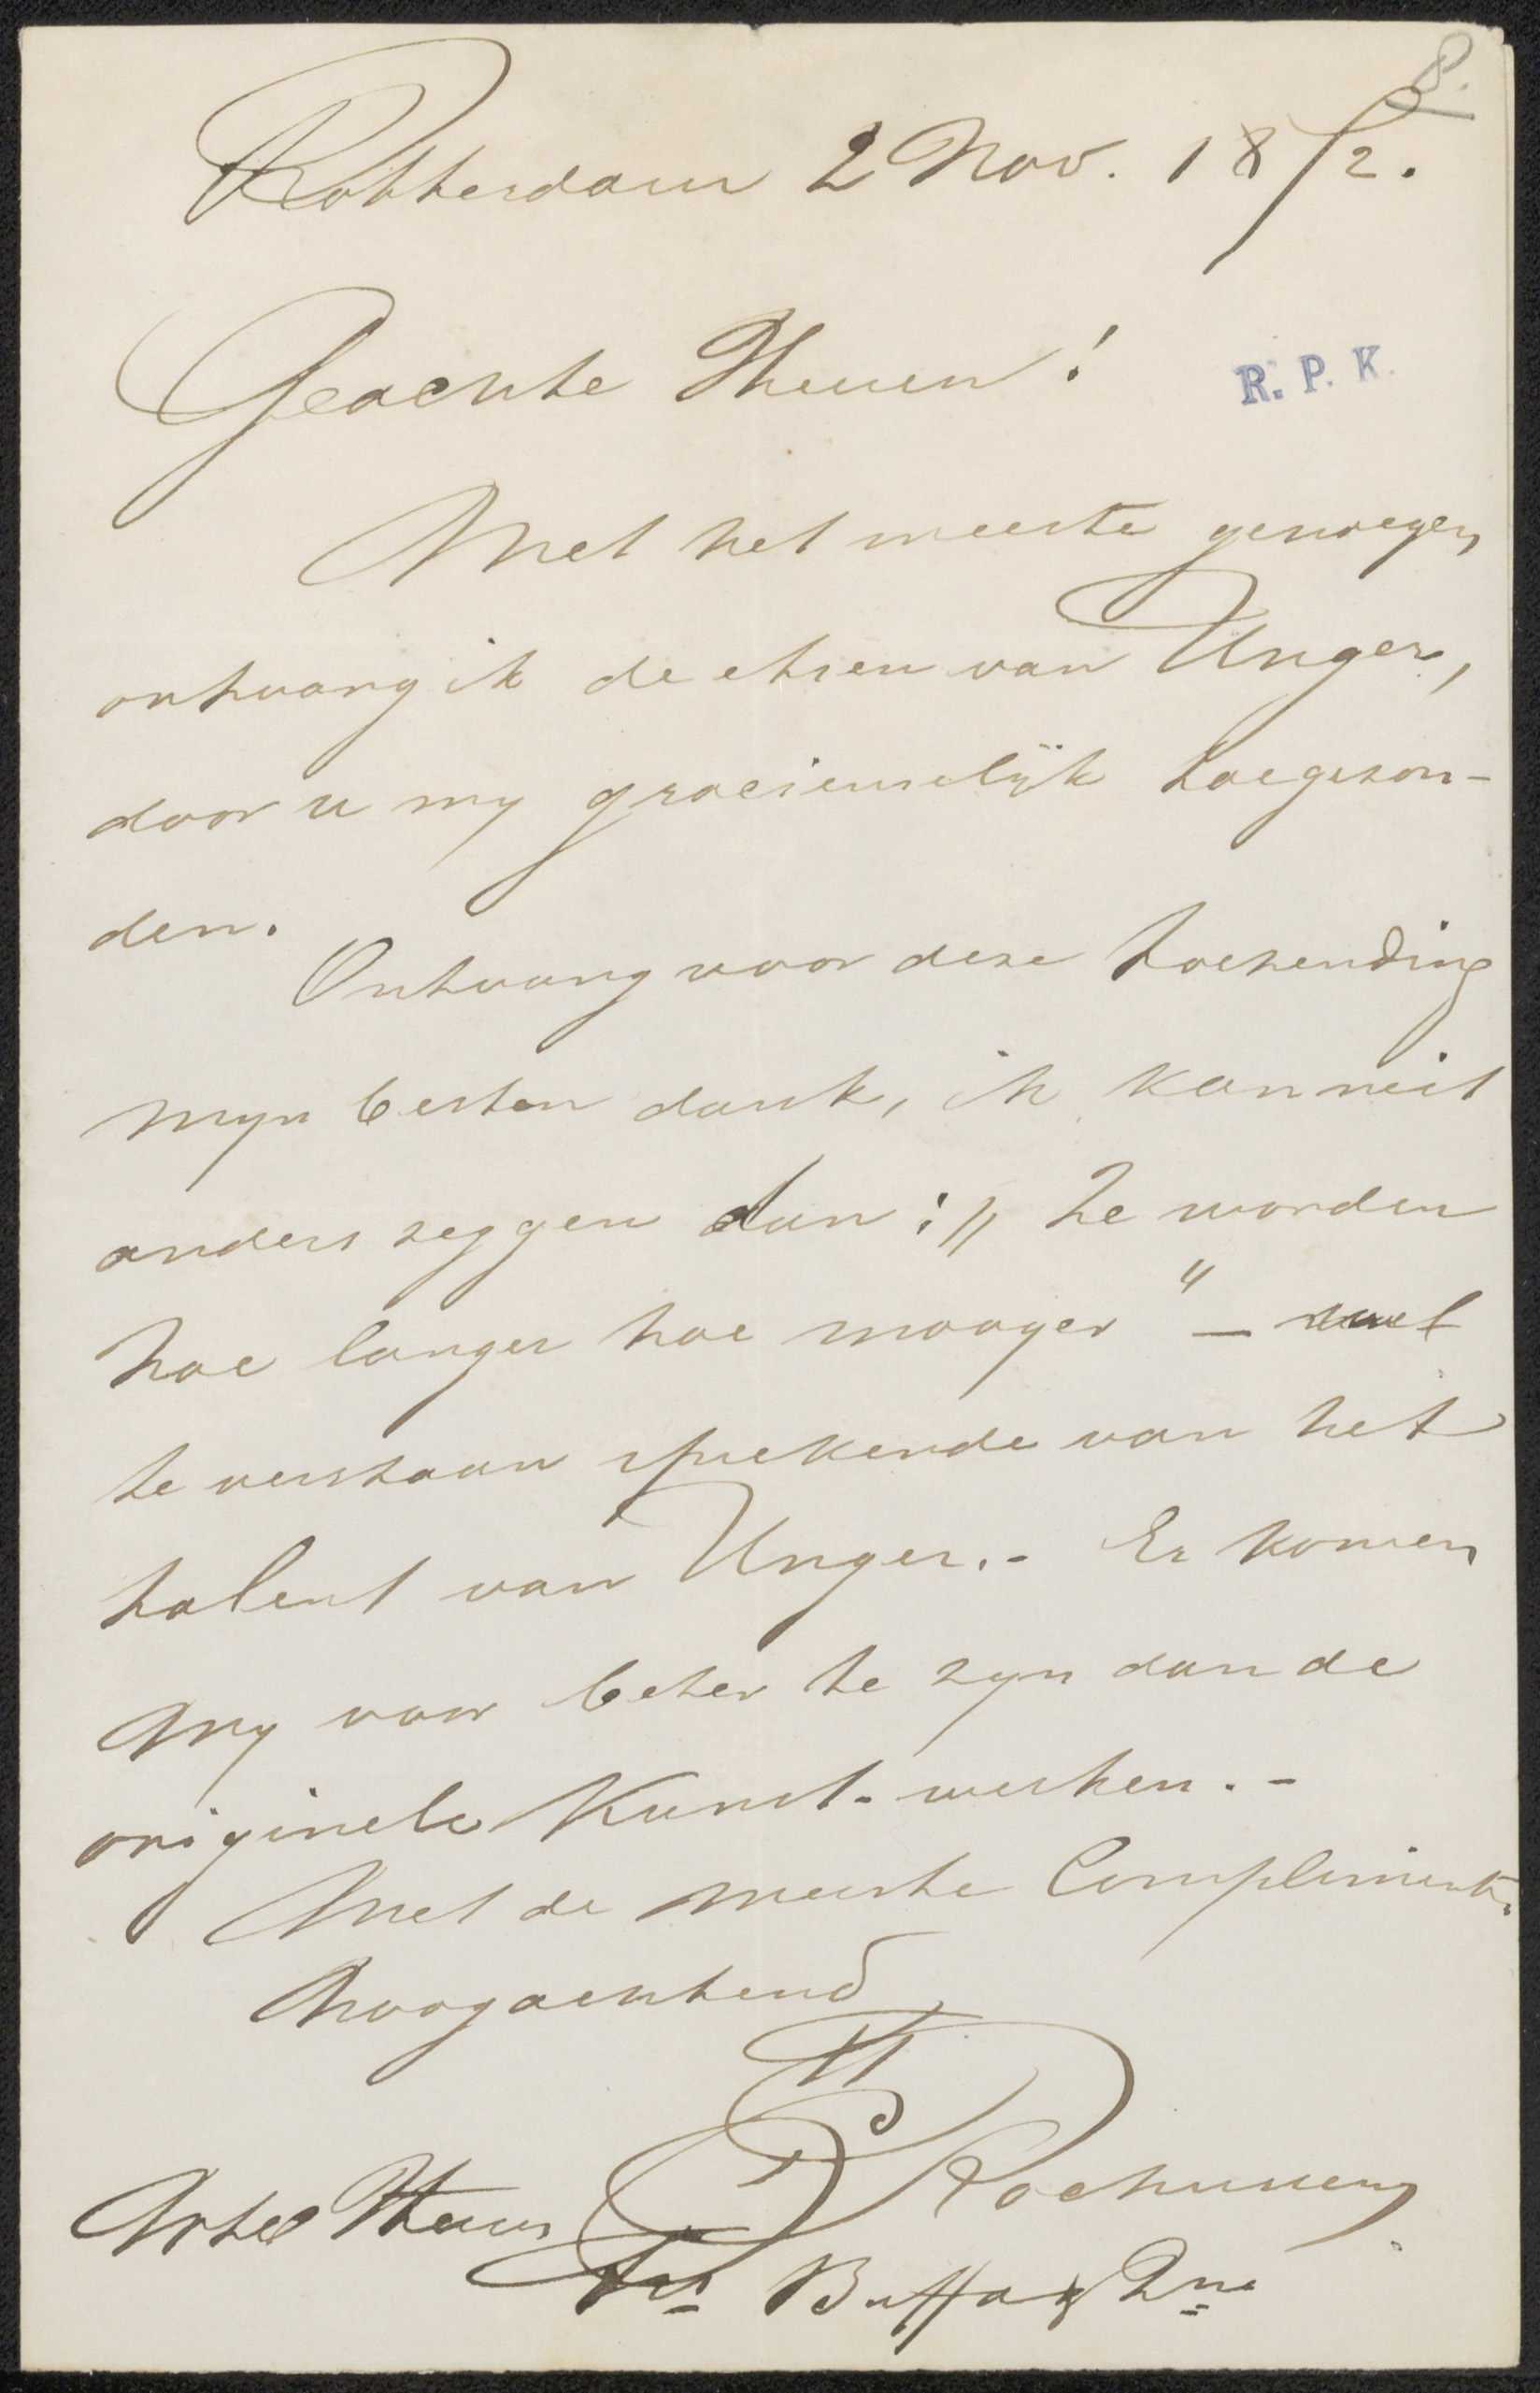 8.
Rotterdam 2 Nov. 1872.
Geachte Heeren!
R. P. K.
Met het meeste genoegen
ontvang ik de etsen van Unger,
door u my gracieuselijk toegezon-
den.
Ontvang voor deze toezending
myn besten dank, ik kan niet
anders zeggen dan: „ Ze worden
hoe langer hoe mooyer “ – wel
te verstaan sprekende van het
talent van Unger. - Er komen
my voor beter te zyn dan de
originele Kunst-werken. -
Met de meeste Complimenten
hoogachtend
Rochussen
Heeren
Frs Buffa & Zne